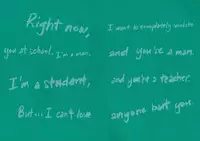 Right now,
you at school. I'm a man.
I'm a student,
But... I can't love
I want to completely
and you're a man.
and you're a teacher.
anyone but you.